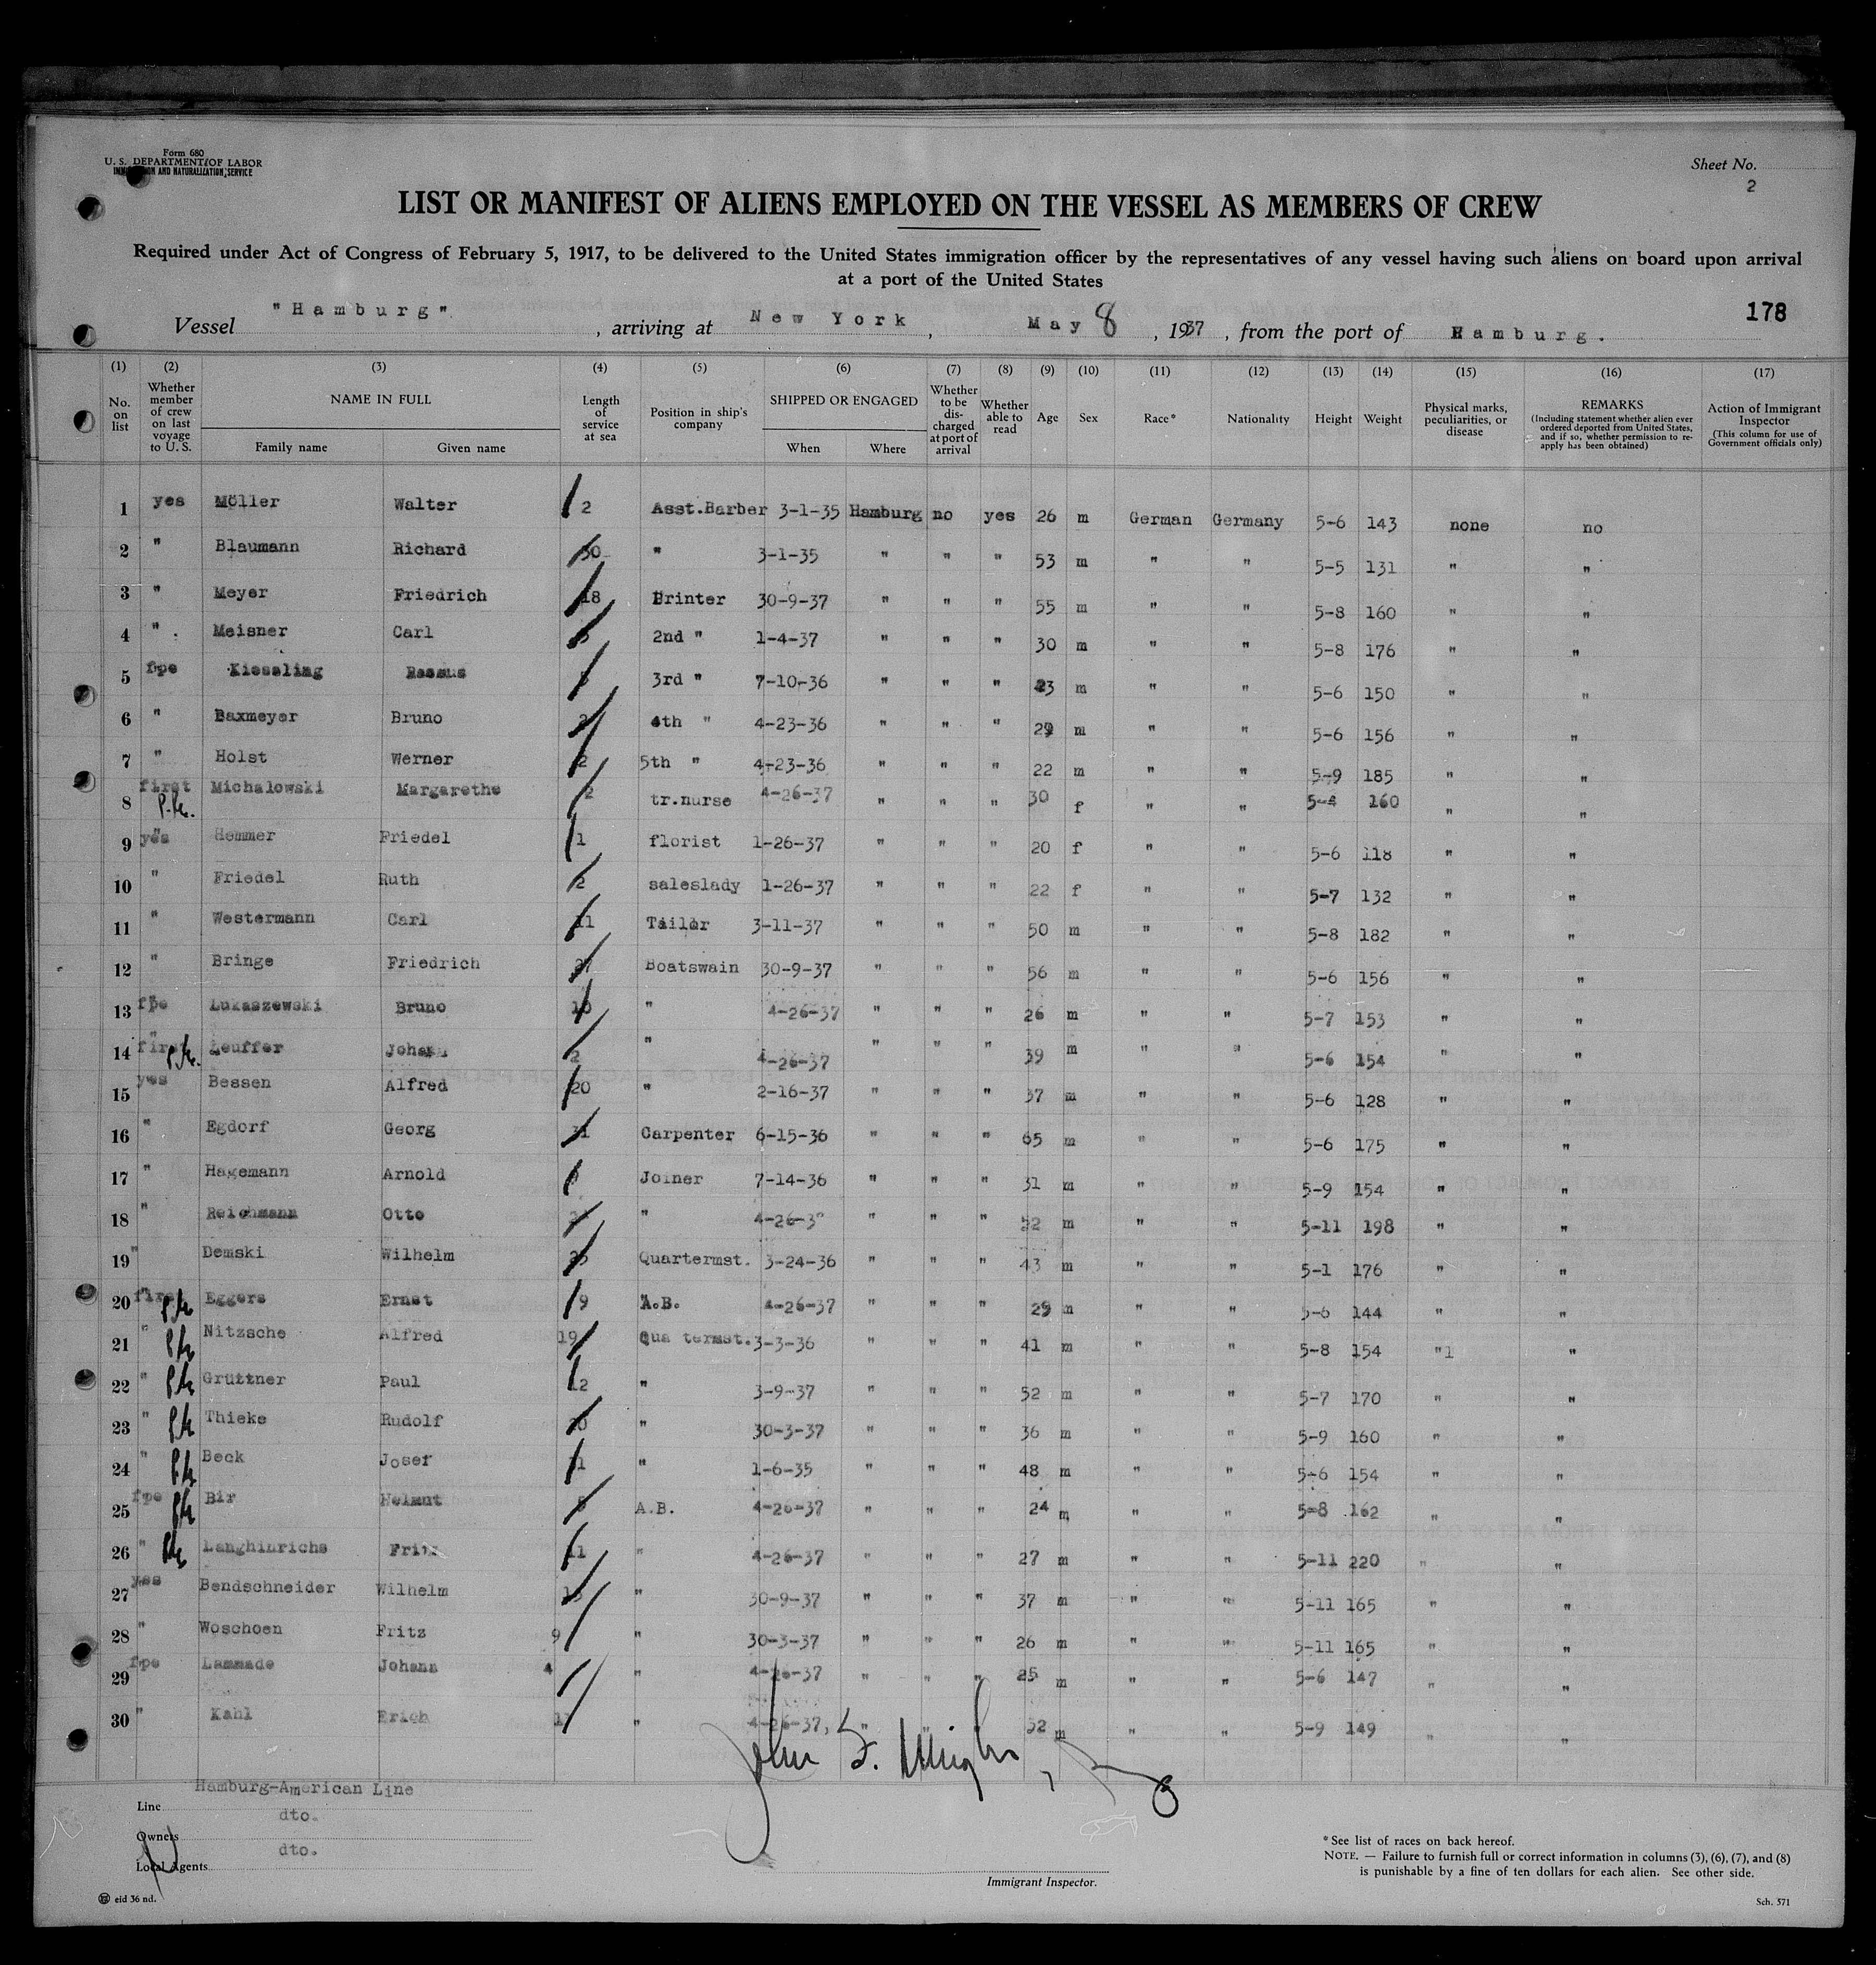 Form 680
U. S. DEPARTMENT OF LABOR
IMMIGRATION AND NATURALIZATION SERVICE
Sheet No.
2
LIST OR MANIFEST OF ALIENS EMPLOYED ON THE VESSEL AS MEMBERS OF CREW
Required under Act of Congress of February 5, 1917, to be delivered to the United States immigration officer by the representatives of any vessel having such aliens on board upon arrival
at a port of the United States
178
Vessel "Hamburg", arriving at New York, May 8, 1937, from the port of Hamburg.
(1) (2) (3) (4) (5) (6) (7) (8) (9) (10) (11) (12) (13) (14) (15) (16) (17)
No. on list
Whether member of crew on last voyage to U. S.
NAME IN FULL
Family name
Given name
Length of service at sea
Position in ship's company
SHIPPED OR ENGAGED
When
Where
Whether to be discharged at port of arrival
Whether able to read
Age
Sex
Race*
Nationality
Height
Weight
Physical marks, peculiarities, or disease
REMARKS
(Including statement whether alien ever ordered deported from United States, and if so, whether permission to reapply has been obtained)
Action of Immigrant Inspector
(This column for use of Government officials only)
1 yes Möller Walter 2 Asst.Barber 3-1-35 Hamburg no yes 26 m German Germany 5-6 143 none no
2 " Blaumann Richard 30 " 3-1-35 " " " 53 m " " 5-5 131 " "
3 " Meyer Friedrich 18 Printer 30-9-37 " " " 55 m " " 5-8 160 " "
4 " Meisner Carl 2nd " 1-4-37 " " " 30 m " " 5-8 176 " "
5 fpe Kiesseling Rasmus 3rd " 7-10-36 " " " 23 m " " 5-6 150 " "
6 " Baxmeyer Bruno 4th " 4-23-36 " " " 29 m " " 5-6 156 " "
7 " Holst Werner 2 5th " 4-23-36 " " " 22 m " " 5-9 185 " "
8 first Michalowski Margarethe 2 tr.nurse 4-26-37 " " " 30 f " " 5-4 160 " "
9 yes Hemmer Friedel 1 florist 1-26-37 " " " 20 f " " 5-6 118 " "
10 " Friedel Ruth 2 saleslady 1-26-37 " " " 22 f " " 5-7 132 " "
11 " Westermann Carl 11 Tailor 3-11-37 " " " 50 m " " 5-8 182 " "
12 " Bringe Friedrich 27 Boatswain 30-9-37 " " " 56 m " " 5-6 156 " "
13 fpe Lukaszewski Bruno 10 " 4-26-37 " " " 26 m " " 5-7 153 " "
14 first Leuffer Johann 2 " 4-26-37 " " " 39 m " " 5-6 154 " "
15 yes Bessen Alfred 20 " 2-16-37 " " " 37 m " " 5-6 128 " "
16 " Egdorf Georg 31 Carpenter 6-15-36 " " " 65 m " " 5-6 175 " "
17 " Hagemann Arnold Joiner 7-14-36 " " " 31 m " " 5-9 154 " "
18 " Reichmann Otto " " " " 52 m " " 5-11 198 " "
19 " Demski Wilhelm 25 Quartermst. 3-24-36 " " " 43 m " " 5-1 176 " "
20 first Eggers Ernst 9 A.B. 4-26-37 " " " 29 m " " 5-6 144 " "
21 " Nitzsche Alfred 19 Qua termst. 3-3-36 " " " 41 m " " 5-8 154 "1 "
22 " Gruttner Paul 12 " 3-9-37 " " " 52 m " " 5-7 170 " "
23 " Thieke Rudolf 20 " 30-3-37 " " " 36 m " " 5-9 160 " "
24 " Beck Josef " 1-6-35 " " " 48 m " " 5-6 154 " "
25 fpe Bir Helmut " A.B. 4-26-37 " " " 24 m " " 5-8 162 " "
26 " Langhinrichs Fritz 11 " 4-26-37 " " " 27 m " " 5-11 220 " "
27 yes Bendschneider Wilhelm " 30-9-37 " " " 37 m " " 5-11 165 " "
28 " Woschoen Fritz 9 " 30-3-37 " " " 26 m " " 5-11 165 " "
29 fpe Lammade Johann 4 " 4-26-37 " " " 25 m " " 5-6 147 " "
30 " Kahl Erich " 4-26-37, " " " 52 m " " 5-9 149 " "
John S.
Line Hamburg-American Line
Owners dto.
Local Agents dto.
Immigrant Inspector.
* See list of races on back hereof.
NOTE. — Failure to furnish full or correct information in columns (3), (6), (7), and (8)
is punishable by a fine of ten dollars for each alien. See other side.
eid 36 nd.
Sch. 571